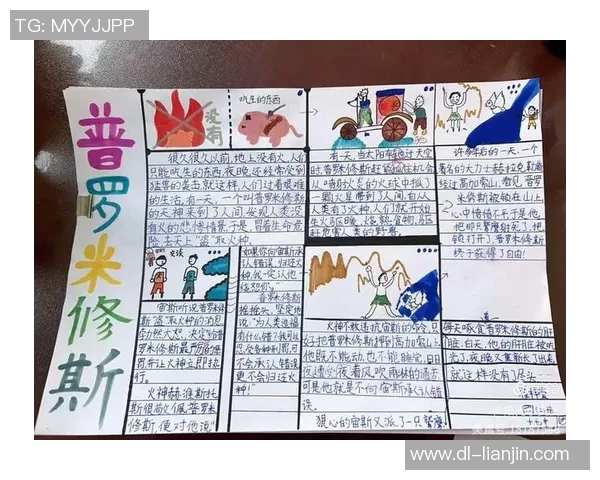 TG: MYYJJPP
普罗米修斯
没有
吃生的东西
很久很久以前,地上没有火,人们
只能吃生的东西,夜晚还经常受到
猛兽的袭击,就这样,人们过着艰难
的生活。有一天,一个叫普罗米修斯
的天神来到了人间,发现人类没
有火的悲惨情景,于是,冒着生命危
险,去天上“盗”取火种。
有一天,当太阳车轰过天空
时,普罗米修斯赶
从
一颗火星带到了人间,自从
人类有了火种,人们就开始
生火取暖、烧熟食物、驱
赶危害人类的野兽。
许多年后的一天,一个
著名的大力士赫拉克勒斯
经过高加索山,看见普罗
米修斯被锁在山上,
心中愤愤不平,于是他
他即只鹫鹰射死了,把
锁打开了,普罗米修斯
终于获得了自由!
交谈
宙斯听说普罗米修
斯“盗”取火种的消息,
勃然大怒,决定给普
罗米修斯最严厉的惩
罚,并让火神立即执
行。
火神赫淮斯托
斯很敬佩普罗米
修斯,便对他说:“
如果你向宙斯承
认错误,归还火
种,我一定让他
饶恕你。”
普罗米修斯
摇摇头,坚定地
说:“为人类造福
有什么错?我可以
忍受各种刑罚,可
不会承认错误,
更不会归还火
种!”
火神不敢违抗宙斯的命令,只
好把普罗米修斯押到高加索山上,
他既不能动,也不能睡觉,日
夜遭受着风吹雨淋的痛苦
可是他就是不向宙斯承认错
误。
狠心的宙斯又派了一只鹫鹰
每天啄食普罗米修斯的肝
脏,白天,他的肝脏被吃
光了,夜晚又重新长了出来
就这样没有了尽头……
www.dl-lianjin.com